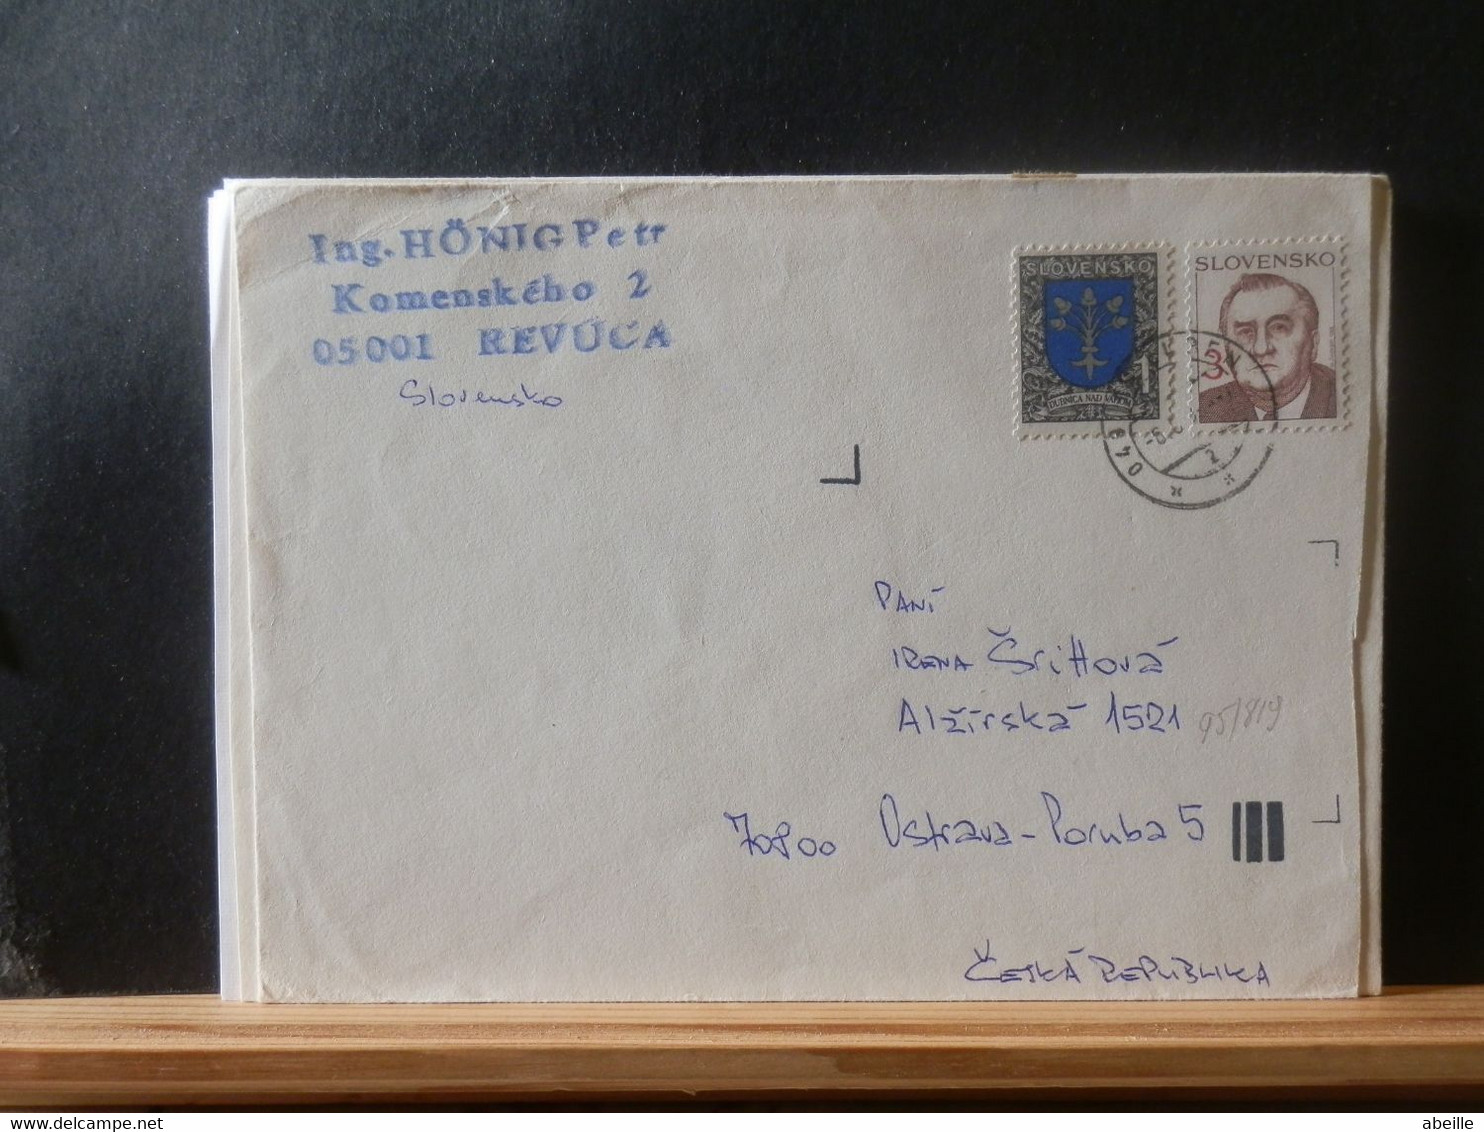 Ing. HÖNIG Petr
Komenského 2
05001 REVÚCA
Slovensko
SLOVENSKO
1
DUBNICA NAD VÁHOM
SLOVENSKO
3
049
PANÍ
IRENA Šrittová
Alžírská 1521
95/819
70800 Ostrava-Poruba 5
ČESKÁ REPUBLIKA
abeille